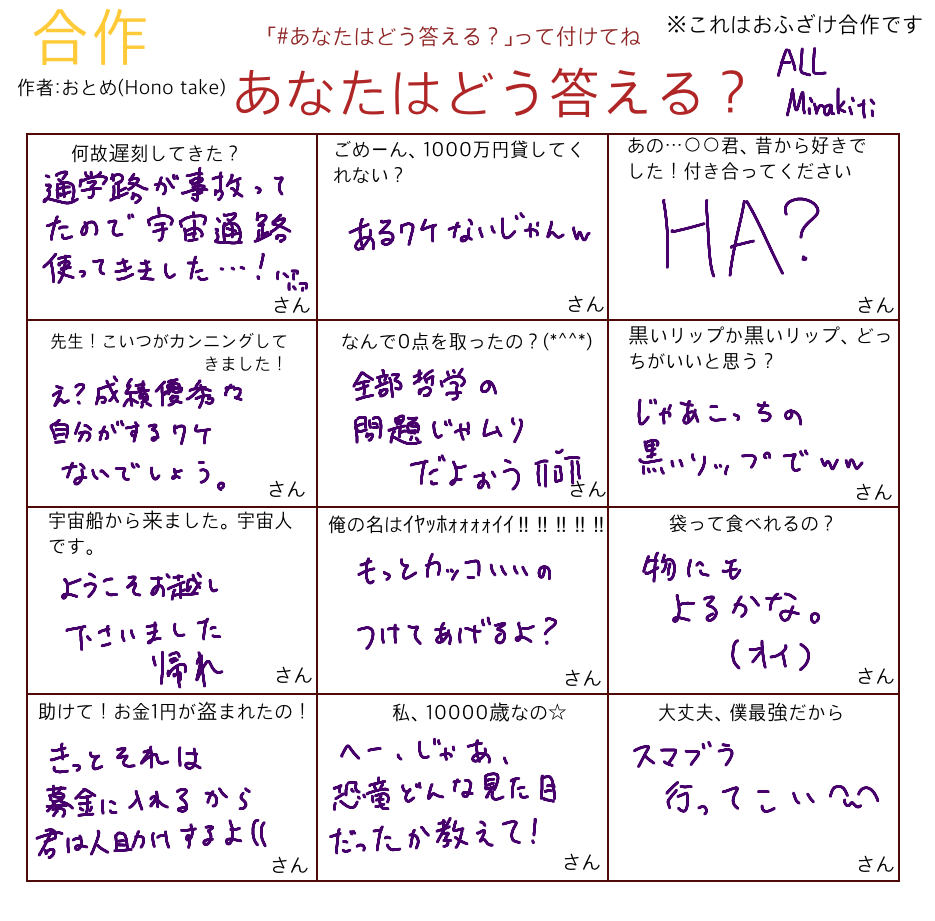 合作
作者:おとめ(Hono take)
「#あなたはどう答える？」って付けてね
あなたはどう答える？
※これはおふざけ合作です
ALL
Mirakiti
何故遅刻してきた？
通学路が事故って
たので宇宙通路
使ってきました…！ハァハァ
さん
ごめーん、1000万円貸してく
れない？
あるワケないじゃんw
さん
あの…○○君、昔から好きで
した！付き合ってください
HA?
さん
先生！こいつがカンニングして
きました！
え?成績優秀な
自分がするワケ
ないでしょう。
さん
なんで0点を取ったの？(*^^*)
全部哲学の
問題じゃムリ
だよぉう
さん
黒いリップか黒いリップ、どっ
ちがいいと思う？
じゃあこっちの
黒いリップでww
さん
宇宙船から来ました。宇宙人
です。
ようこそお越し
下さいました
帰れ
さん
俺の名はイヤッホォォォォイイ!! !! !! !! !!
もっとカッコいいの
つけてあげるよ?
さん
袋って食べれるの？
物にも
よるかな。
(オイ)
さん
助けて！お金1円が盗まれたの！
きっとそれは
募金に入れるから
君は人助けするよ((
さん
私、10000歳なの☆
へー、じゃあ、
恐竜どんな見た目
だったか教えて!
さん
大丈夫、僕最強だから
スマブラ
行ってこい
さん